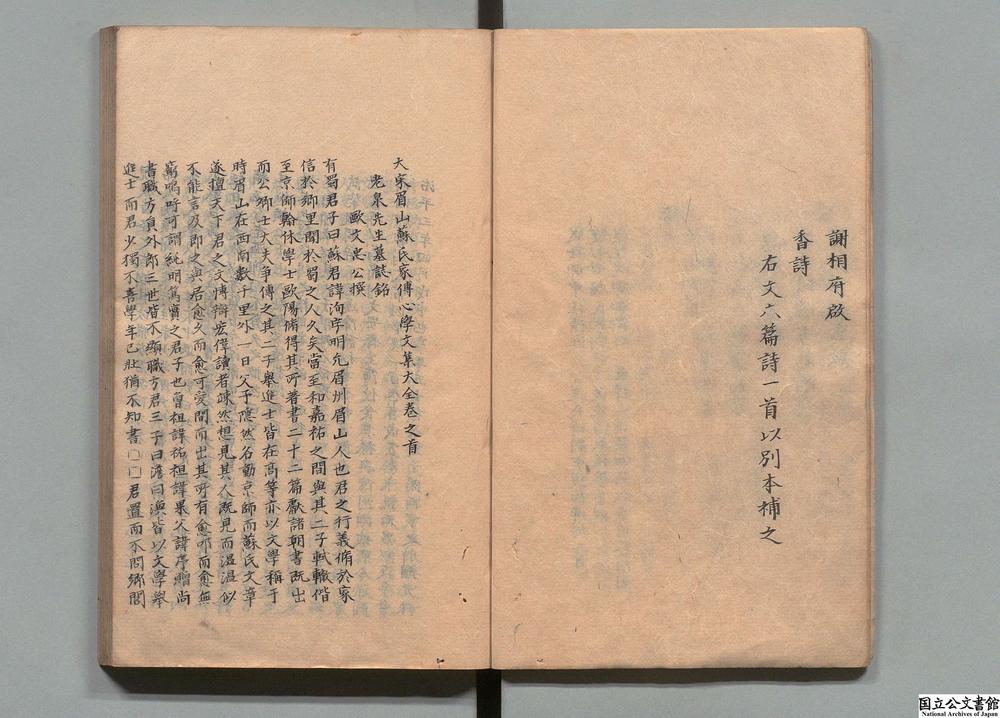 謝相府啟
香詩
右文六篇詩一首以別本補之
大宋眉山蘇氏家傳心學文集大全卷之首
老泉先生墓誌銘
歐文忠公撰
有蜀君子曰蘇君諱洵字明允眉州眉山人也君之行義脩於家
信於鄉里聞於蜀之人久矣當至和嘉祐之間與其二子軾轍偕
至京師翰林學士歐陽脩得其所著書二十二篇獻諸朝書既出
而公卿士大夫爭傳之其二子舉進士皆在高等亦以文學稱于
時眉山在西南數千里外一日父子隱然名動京師而蘇氏文章
遂擅天下君之文博辯宏偉讀者竦然想見其人既見而温温似
不能言及即之與居愈久而愈可愛間而出其所有愈叩而愈無
窮嗚呼可謂純明篤實之君子也曾祖諱祐祖諱杲父諱序贈尚
書職方員外郎三世皆不顯職方君三子曰澹曰渙皆以文學舉
進士而君少獨不喜學年已壯猶不知書□□君置而不問鄉閭
国立公文書館
National Archives of Japan